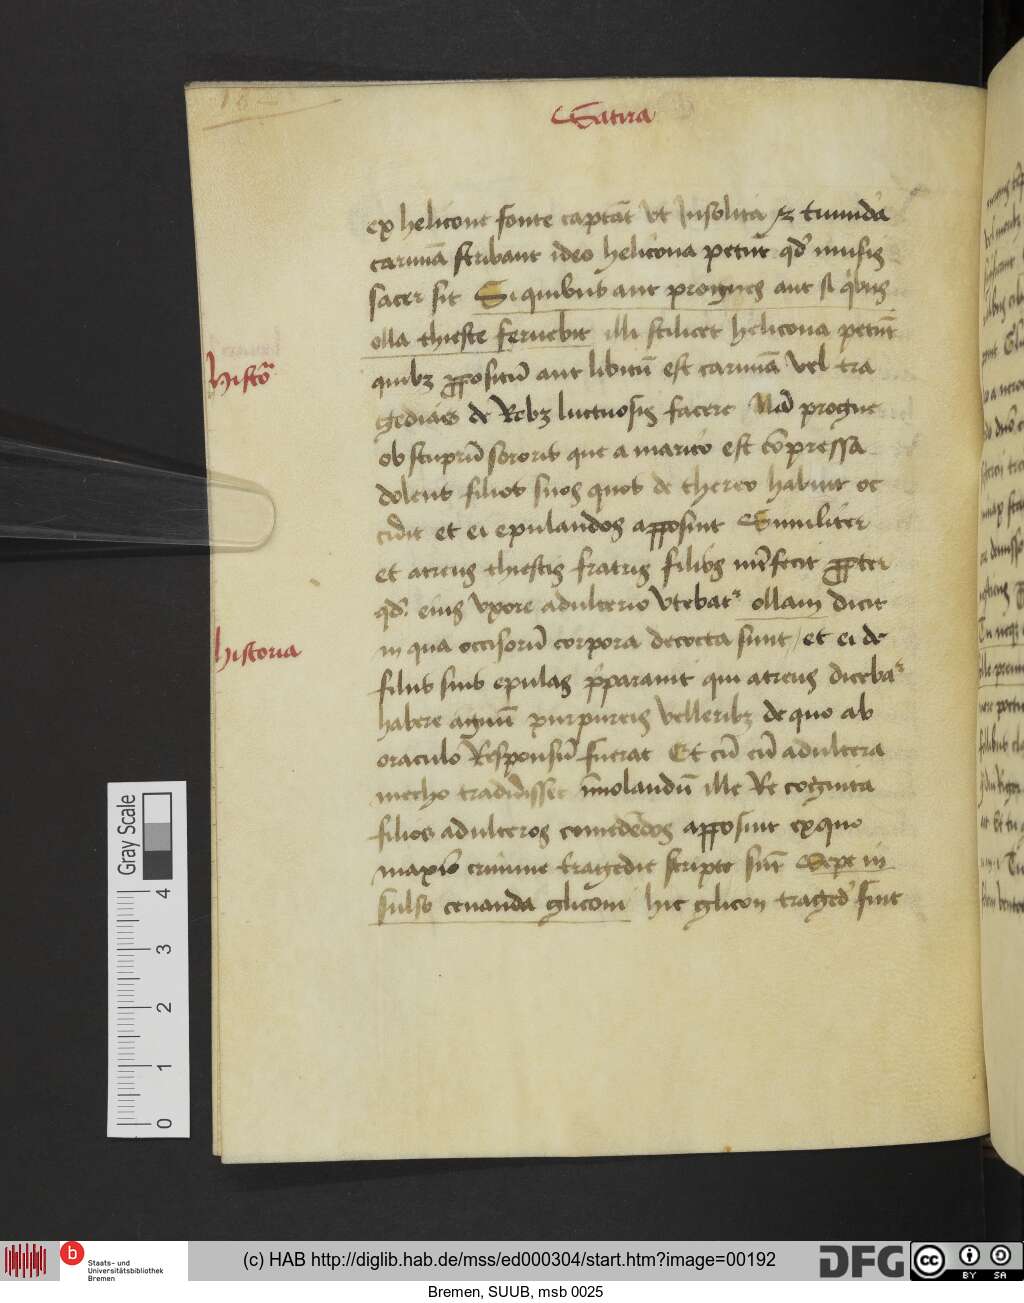 Satira
ex helicone fonte captāt vt Insolita & tumida
carmīa scribant ideo helicona petūt qd' musis
sacer sit Si quibus aut prognes aut si q̍bus
olla thieste feruebit illi scilicet helicona petūt
Histo
quibꝫ ꝓpositū aut libitū est carmīa vel tra
gedias de Rebꝫ luctuosis facere Nā progne
ob stuprū sororis que a marito est cōpressa
dolens filios suos quos de thereo habuit oc
cidit et ei epulandos apposuit Similiter
et atreus thiestis fratris filios īterfecit ꝓpter
qd' eius vxore adulterio vtebat' ollam dicit
in qua occisorū corpora decocta sunt / et ei de
Historia
filiis suis epulas p̄parauit qui atreus diceba'
habere agnū purpureis velleribꝫ de quo ab
oraculo Responsū fuerat Et cū eū adultera
mecho tradidisset īmolandū ille Re cognita
filios adulteros comedēdos apposuit ex quo
maxīo crimine tragedie scripte sūt Sepe in
sulso cenanda gliconi hic glicon traged' fuit
Gray Scale
4
3
2
1
0
b
Staats- und
Universitätsbibliothek
Bremen
(c) HAB http://diglib.hab.de/mss/ed000304/start.htm?image=00192
DFG
cc
BY SA
Bremen, SUUB, msb 0025